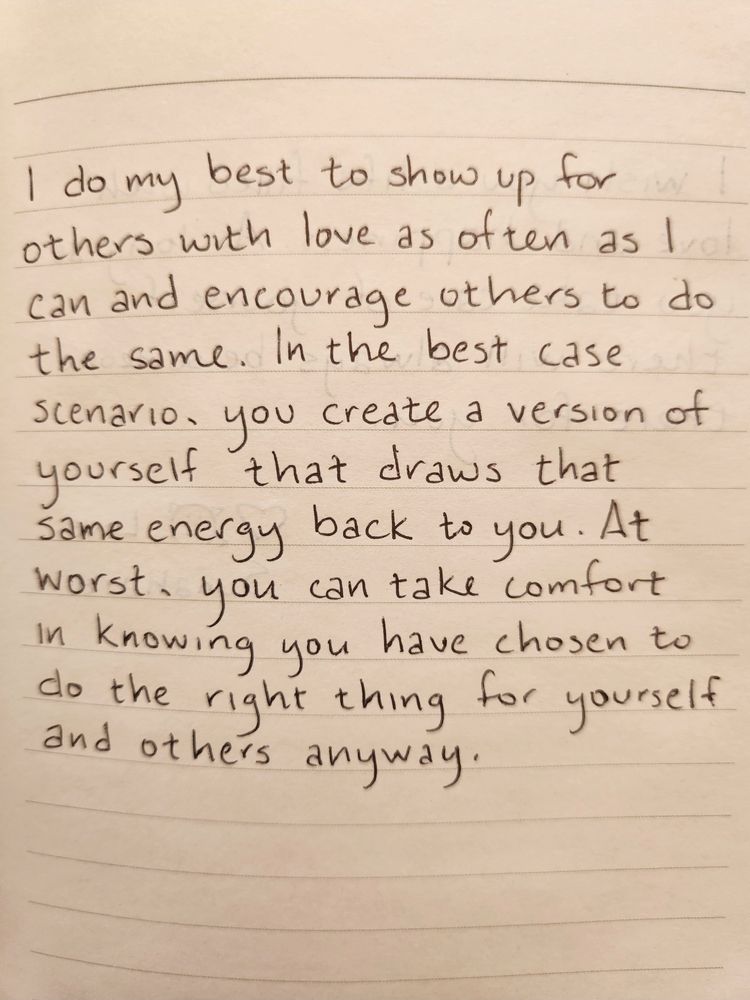 I do my best to show up for
others with love as often as I
can and encourage others to do
the same. In the best case
scenario, you create a version of
yourself that draws that
same energy back to you. At
worst, you can take comfort
in knowing you have chosen to
do the right thing for yourself
and others anyway.